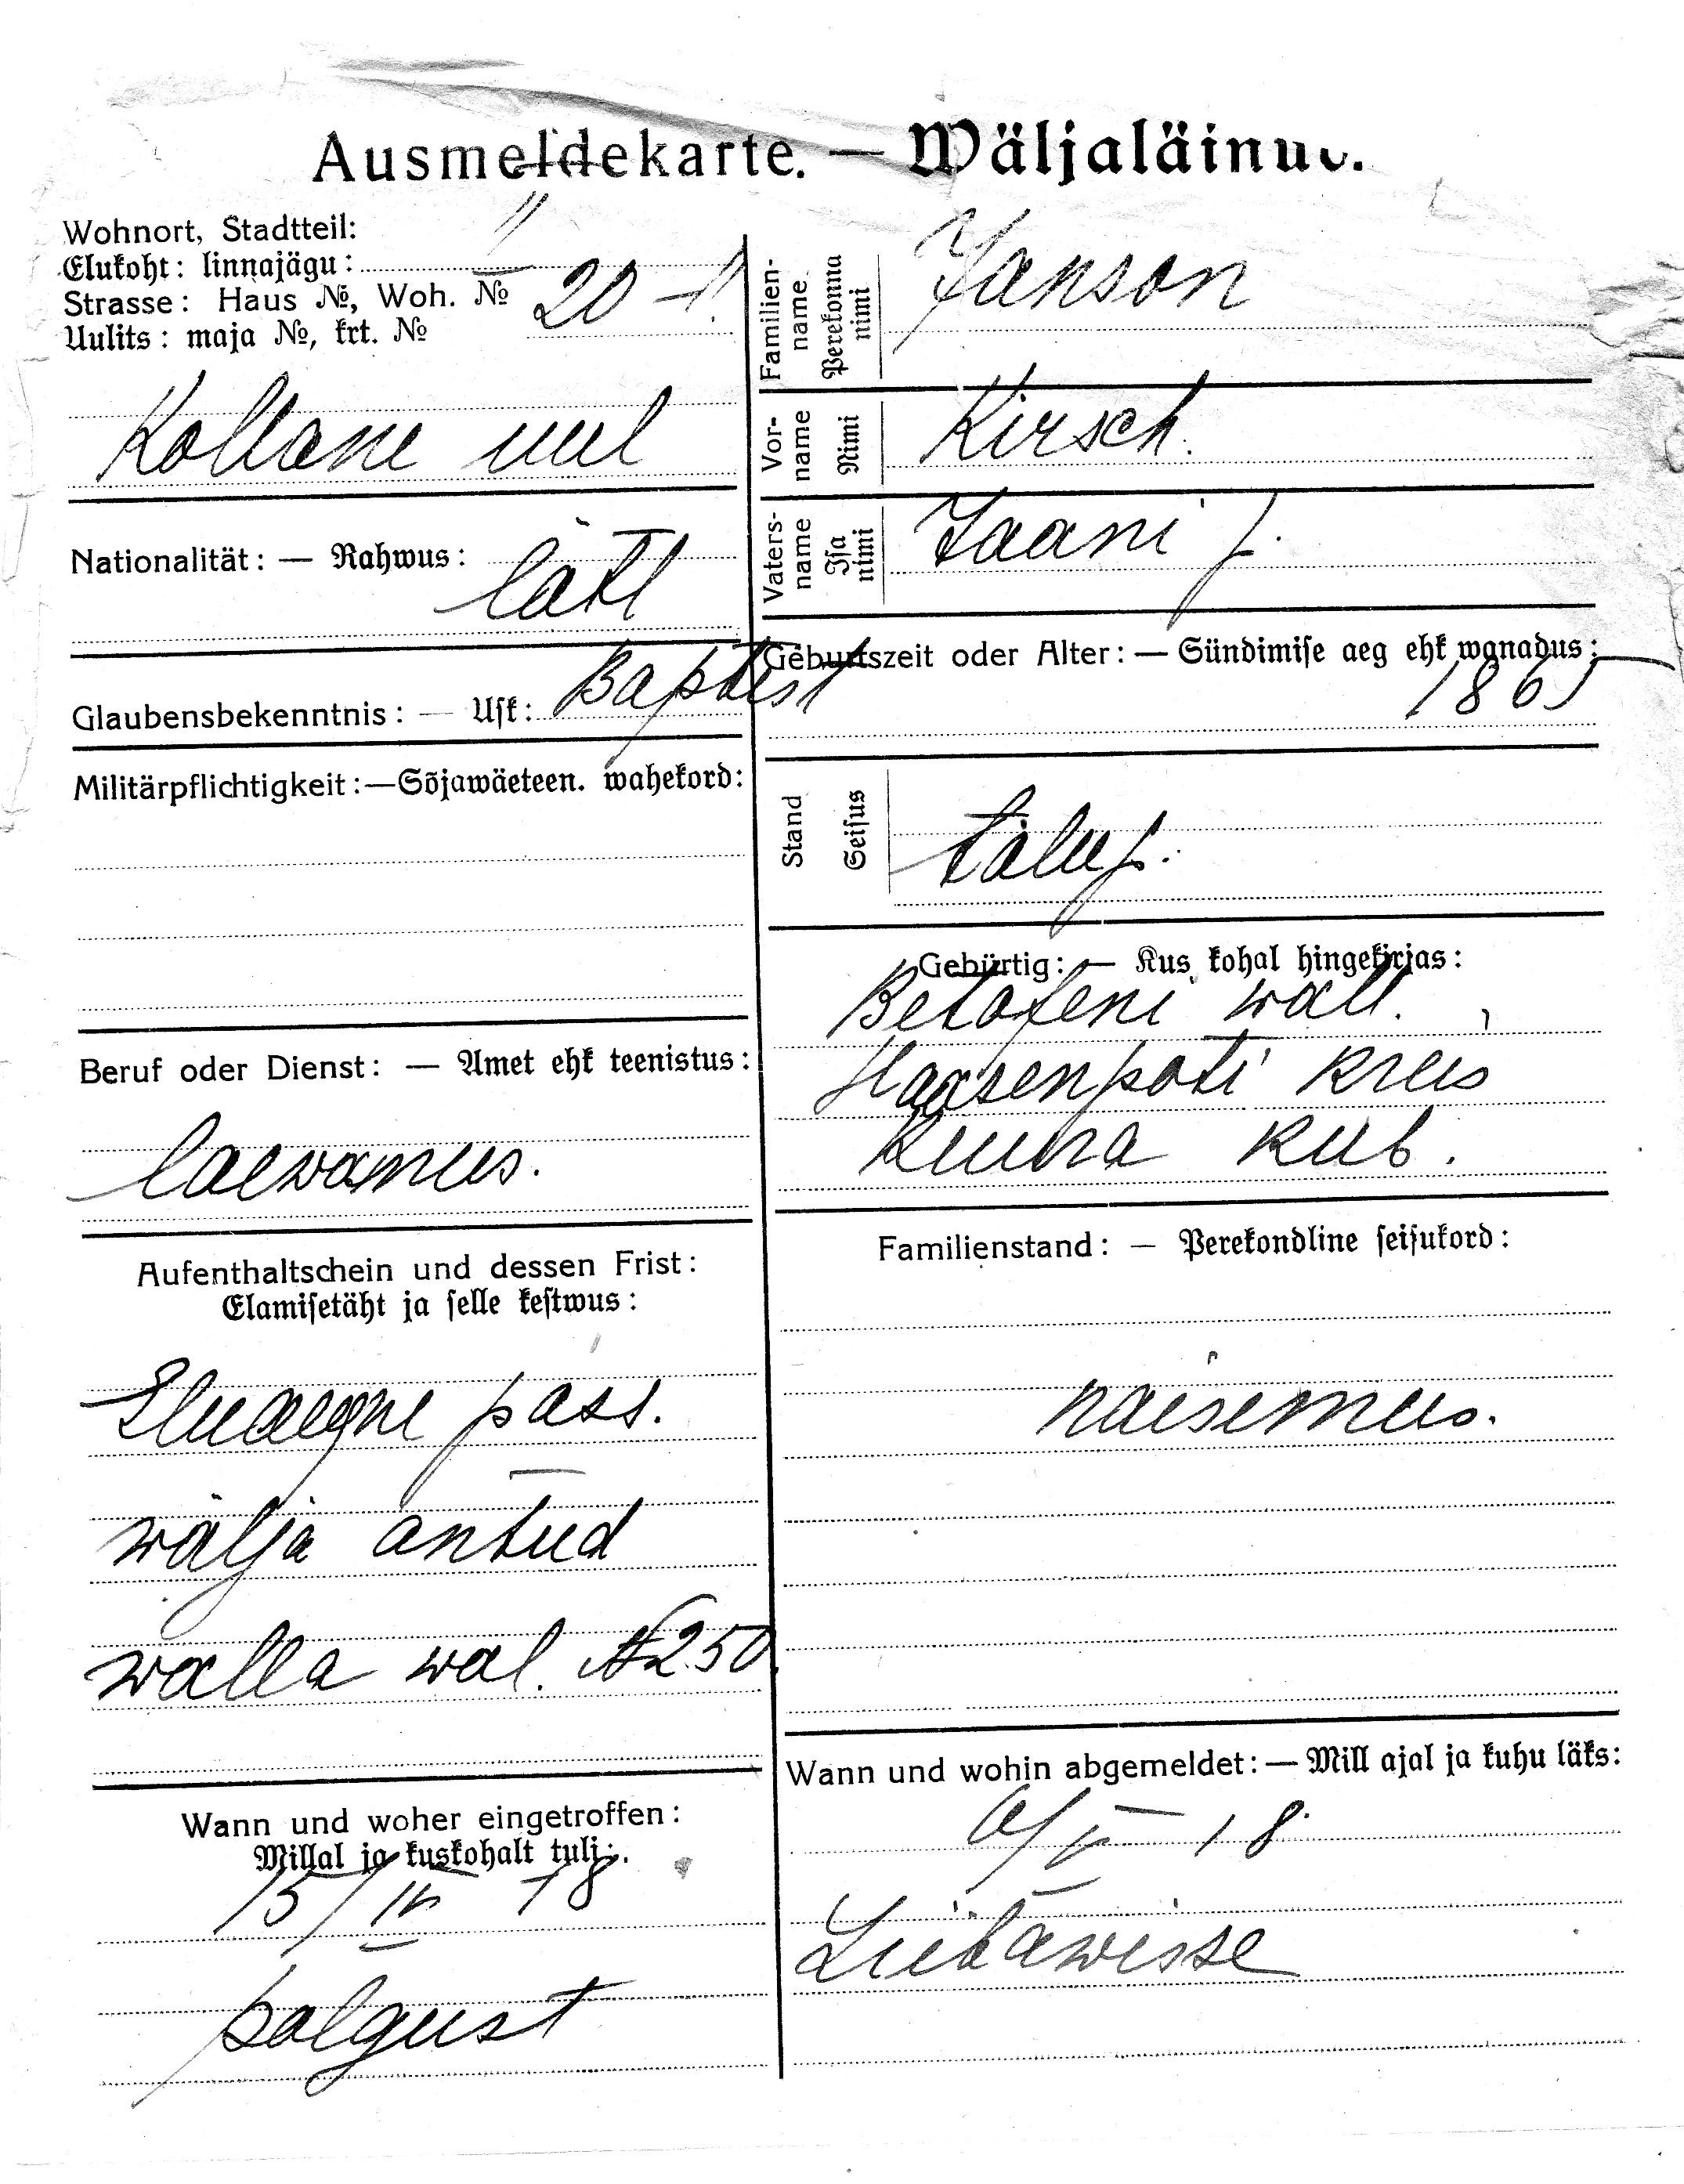 Ausmeldekarte. — Wäljaläinud.
Wohnort, Stadtteil:
Elukoht: linnajägu: II
Strasse: Haus №, Woh. № 20 – 1.
Uulits: maja №, krt. №
Kollane uul
Nationalität: — Rahwus: lätl
Glaubensbekenntnis: — Usk: Baptist
Militärpflichtigkeit:—Sõjawäeteen. wahekord:
Beruf oder Dienst: — Amet ehk teenistus:
laewamees.
Aufenthaltschein und dessen Frist:
Elamisetäht ja selle kestwus:
Eluaegne pass.
wälja antud
walla wal. № 250.
Wann und woher eingetroffen:
Millal ja kuskohalt tuli:
15/IV 18
polgust
Familienname Perekonna nimi
Janson
Vorname Nimi
Kirsch.
Vatersname Isa nimi
Jaani p.
Geburtszeit oder Alter: — Sündimise aeg ehk wanadus:
1865
Stand Seisus
talup.
Gebürtig: — Kus kohal hingekirjas:
wall.
Haasenpoti kreis
Kuura kub.
Familienstand: — Perekondline seisukord:
naisemees.
Wann und wohin abgemeldet: — Mill ajal ja kuhu läks:
V 18
Liibawisse